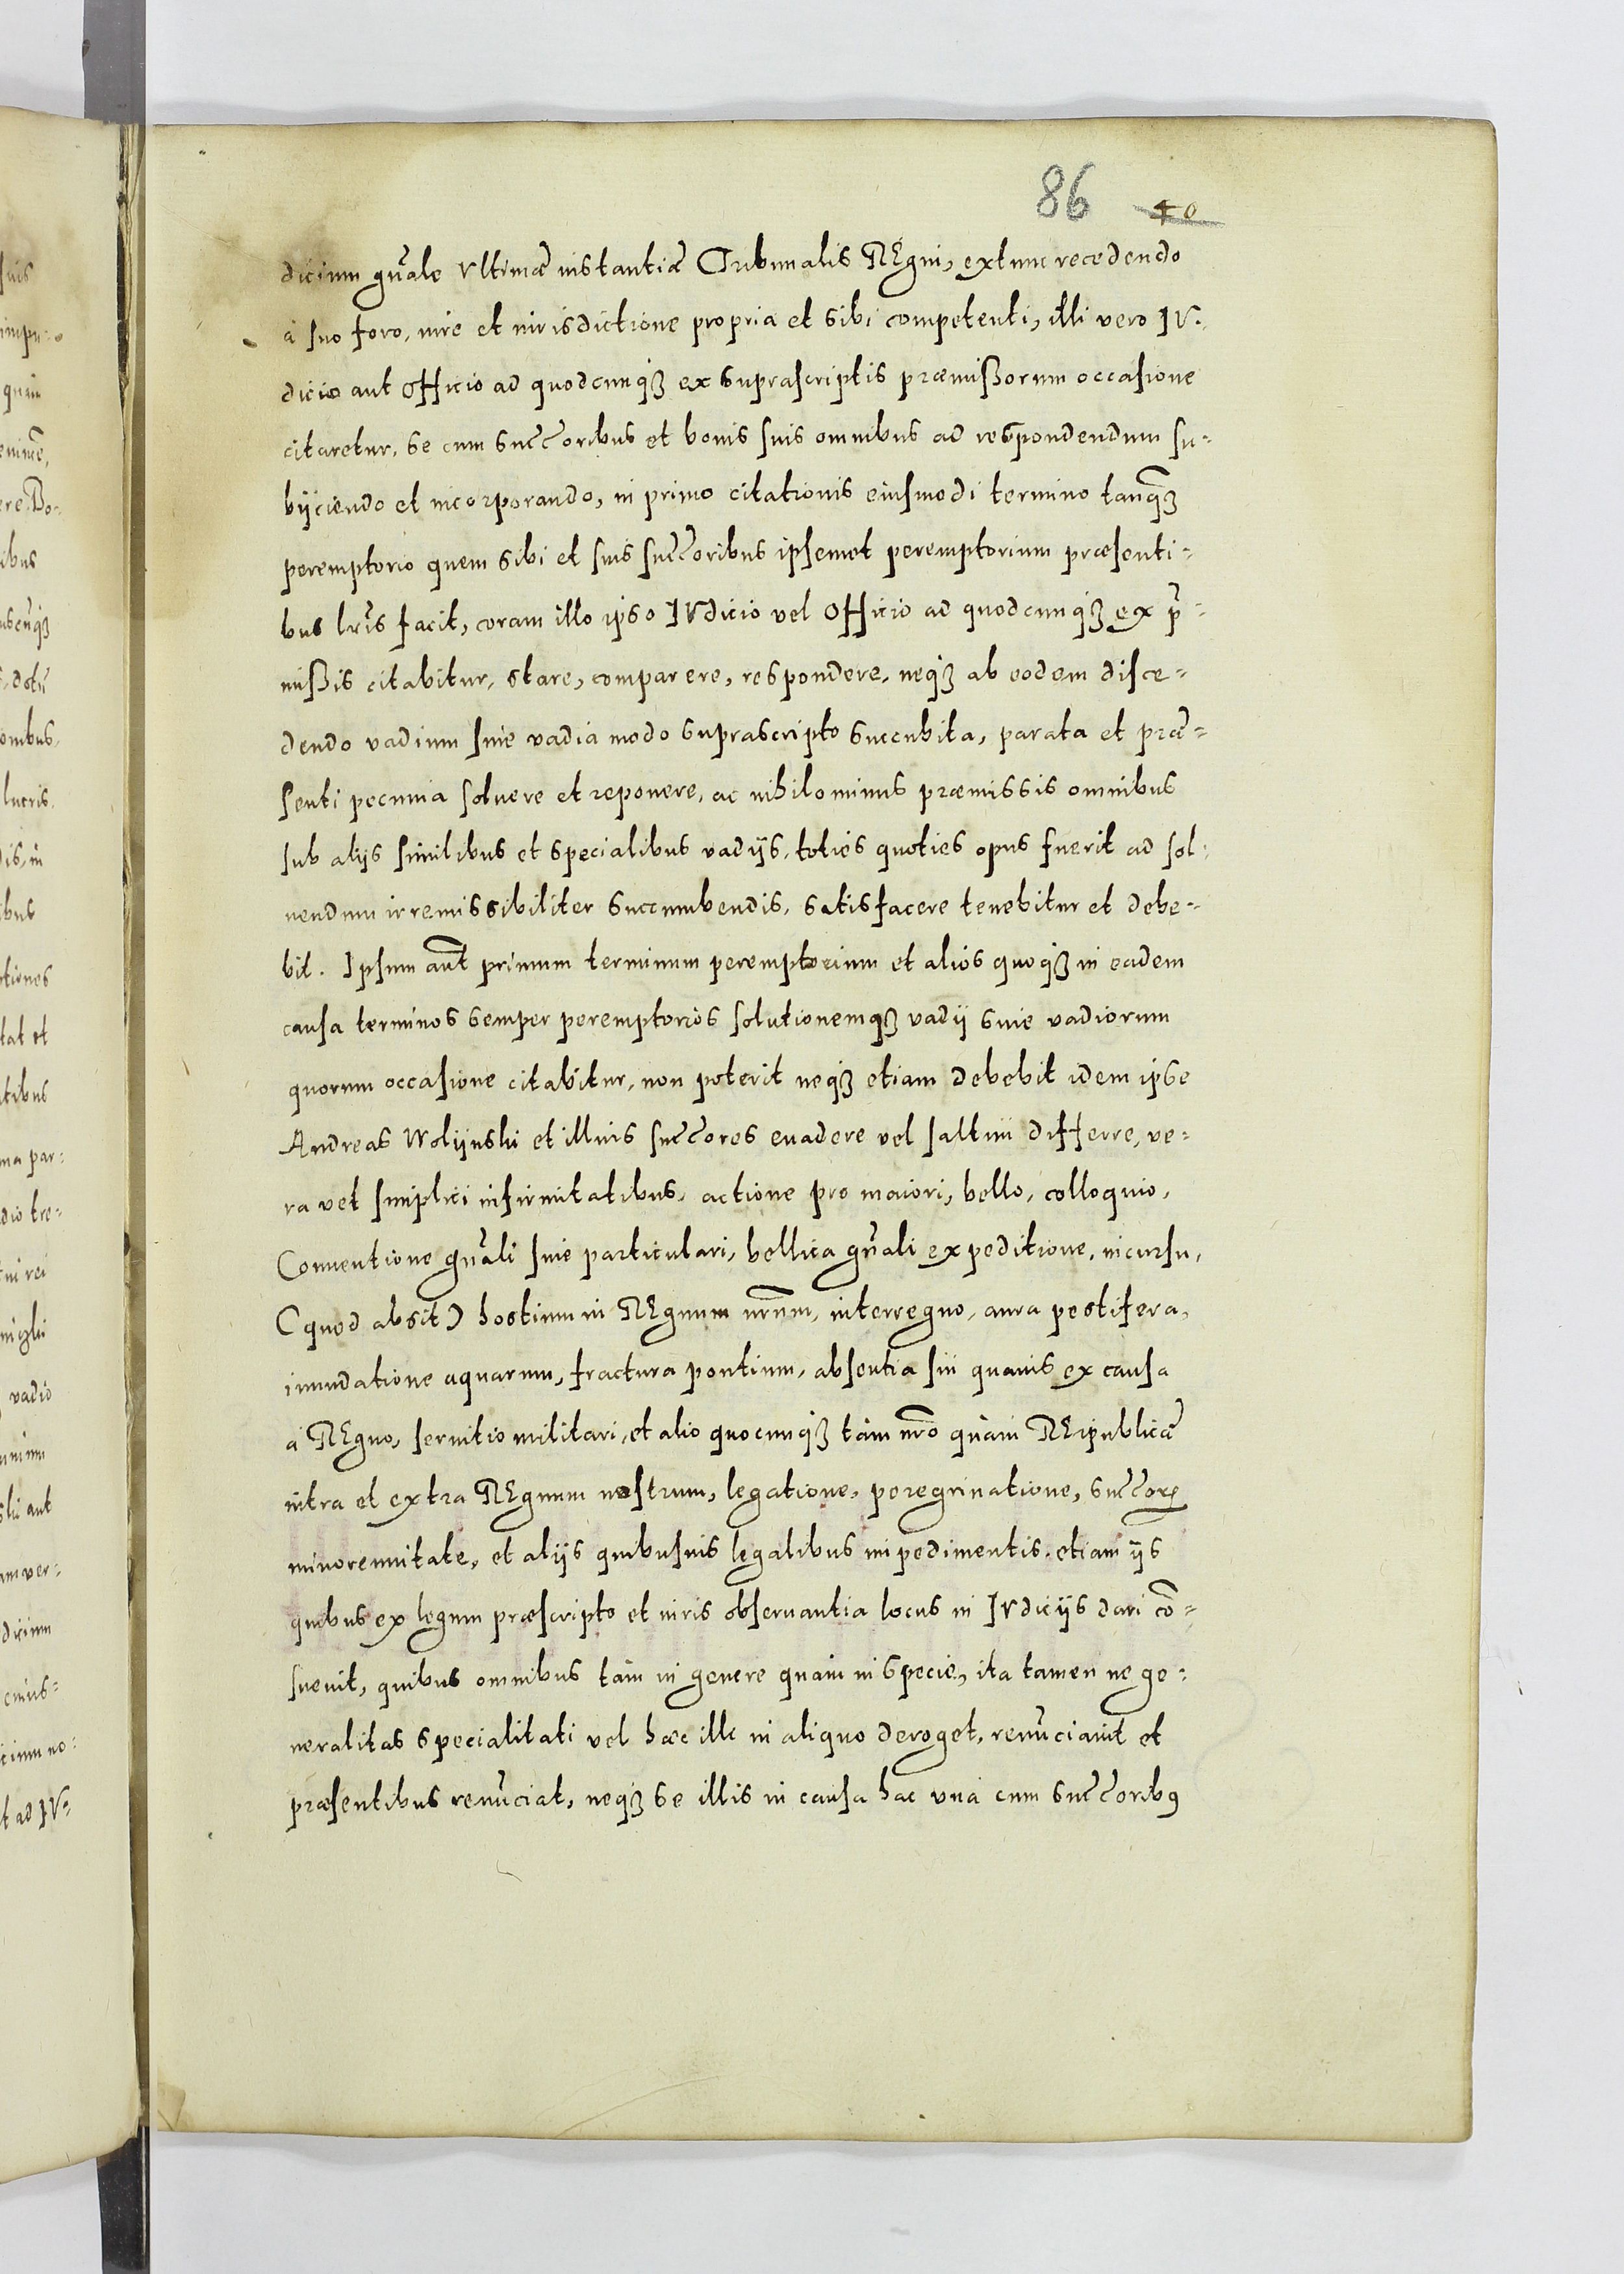 86 40
dicium gnale Vltimæ instantiæ Tribunalis REgni, extunc recedendo
à suo foro, iure et iurisdictione propria et sibi competenti, illi vero IV-
dicio aut Officio ad quodcunq3 ex suprascriptis præmißorum occasione
citaretur, se cum succoribus et bonis suis omnibus ad respondendum su-
bijciendo et incorporando, in primo citationis eiusmodi termino tanq3
peremptorio quem sibi et suis succoribus ipsemet peremptorium præsenti-
bus lris facit, coram illo ipso IVdicio vel Officio ad quodcunq3 ex p̄-
mißis citabitur, stare, comparere, respondere, neq3 ab eodem disce-
dendo vadium siue vadia modo suprascripto succubita, parata et præ-
senti pecunia soluere et reponere, ac nihilominus præmissis omnibus
sub alijs similibus et specialibus vadijs, toties quoties opus fuerit ad sol-
uendum irremissibiliter succumbendis, satisfacere tenebitur et debe-
bit. Ipsum aut̄ primum terminum peremptorium et alios quoq3 in eadem
causa terminos semper peremptorios solutionemq3 vadij siue vadiorum
quorum occasione citabitur, non poterit neq3 etiam debebit idem ipse
Andreas Wolijnski et illius succores euadere vel saltim differre, ve-
ra vel simplici infirmitatibus, actione pro maiori, bello, colloquio,
Conuentione gnali siue particulari, bellica gnali expeditione, incursu,
(quod absit) hostium in REgnum nrum, interregno, aura pestifera,
inundatione aquarum, fractura pontium, absentia sui quauis ex causa
à REgno, seruitio militari, et alio quocunq3 tàm nrō quàm REipublicæ
intra et extra REgnum nostrum, legatione, peregrinatione, succorꝝ
minorennitate, et alijs quibusuis legalibus impedimentis, etiam ijs
quibus ex legum præscripto et iuris obseruantia locus in IVdicijs dari co-
sueuit, quibus omnibus tàm in genere quàm in specie, ita tamen ne ge-
neralitas specialitati vel hæc illi in aliquo deroget, renūciauit et
præsentibus renūciat, neq3 se illis in causa hac vnà cum succoribꝰ